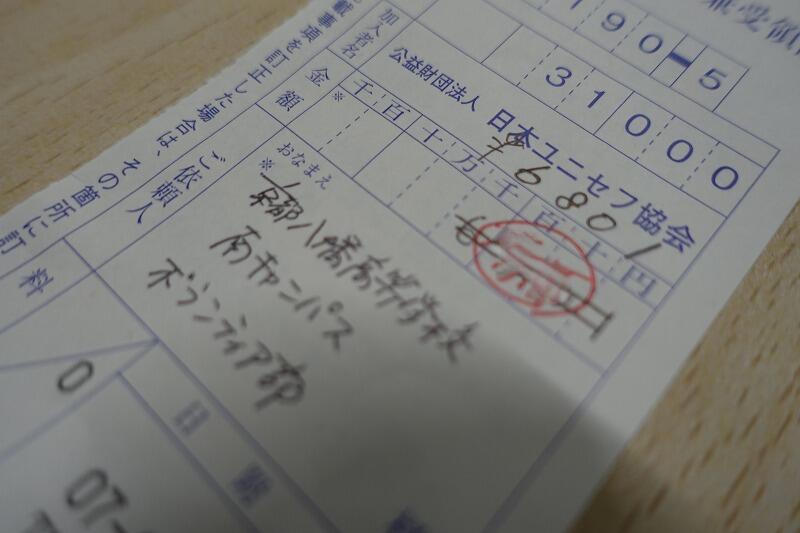 兼受領
190-5
31000
加入者名
公益財団法人 日本ユニセフ協会
金額
※
千百十万千百十円
¥6801
おなまえ
※
ご依頼人
京都八幡高等学校
南キャンパス
ボランティア部
載事項を訂正した場合は、その箇所に訂
料
0
日附
07-